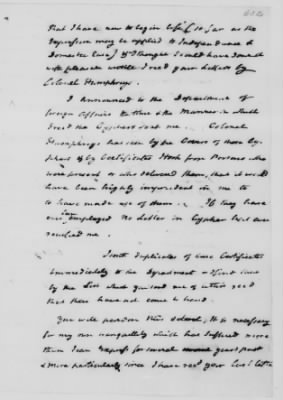 that I have now to begin life (so far as the
expression may be applied to Independance &
Domestic Ease) & Thought I could have done it
with pleasure until I recd your Letters by
Colonel Humphreys.
I announced to the Department of
foreign Affairs the time & the Manner in which
I recd the Cyphers sent me. Colonel
Humphreys has seen by the Covers of these Cy-
phers & by Certificates I took from Persons who
were present or who delivered them, that it would
have been highly imprudent in me to
to have made use of them. If they have
ever employed No Letter in Cypher has ever
reached me.
I sent duplicates of these Certificates
immediately to the Department & I find since
by the
that these have not come to hand.
You will pardon this detail, It is necessary
for my own tranquility which has suffered more
than I can express for several years past
& more particularly since I have recd your last letter